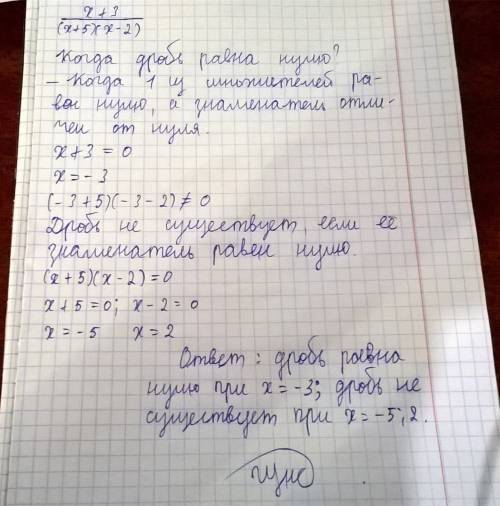 x+3
(x+5)(x-2)
Когда дробь равна нулю?
- Когда 1 из множителей ра-
вен нулю, а знаменатель отли-
чен от нуля.
x+3=0
x=-3
(-3+5)(-3-2)≠0
Дробь не существует, если её
знаменатель равен нулю.
(x+5)(x-2)=0
x+5=0; x-2=0
x=-5 x=2
Ответ: дробь равна
нулю при x=-3; дробь не
существует при x=-5;2.